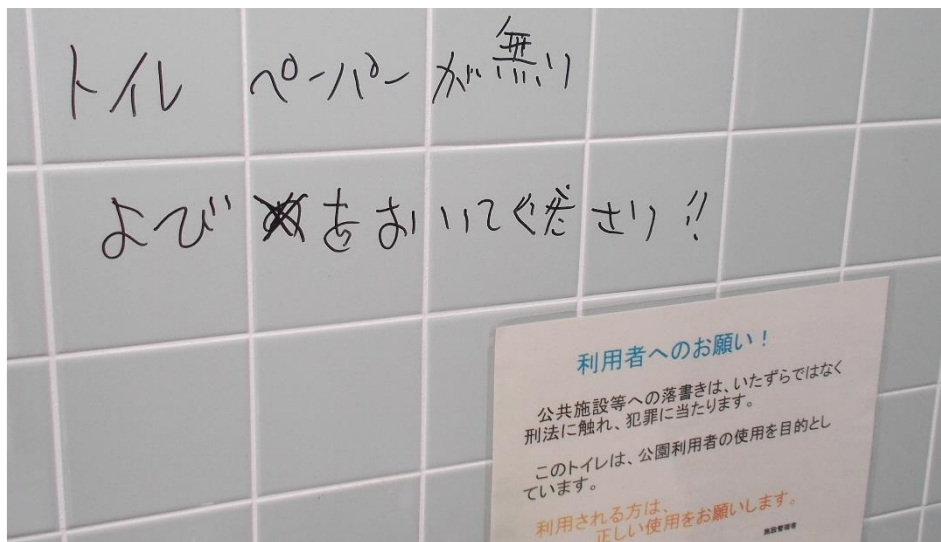 トイレ ペーパーが無い
よびをおいてください!!
利用者へのお願い!
公共施設等への落書きは、いたずらではなく
刑法に触れ、犯罪に当たります。
このトイレは、公園利用者の使用を目的とし
ています。
利用される方は、
正しい使用をお願いします。
施設管理者